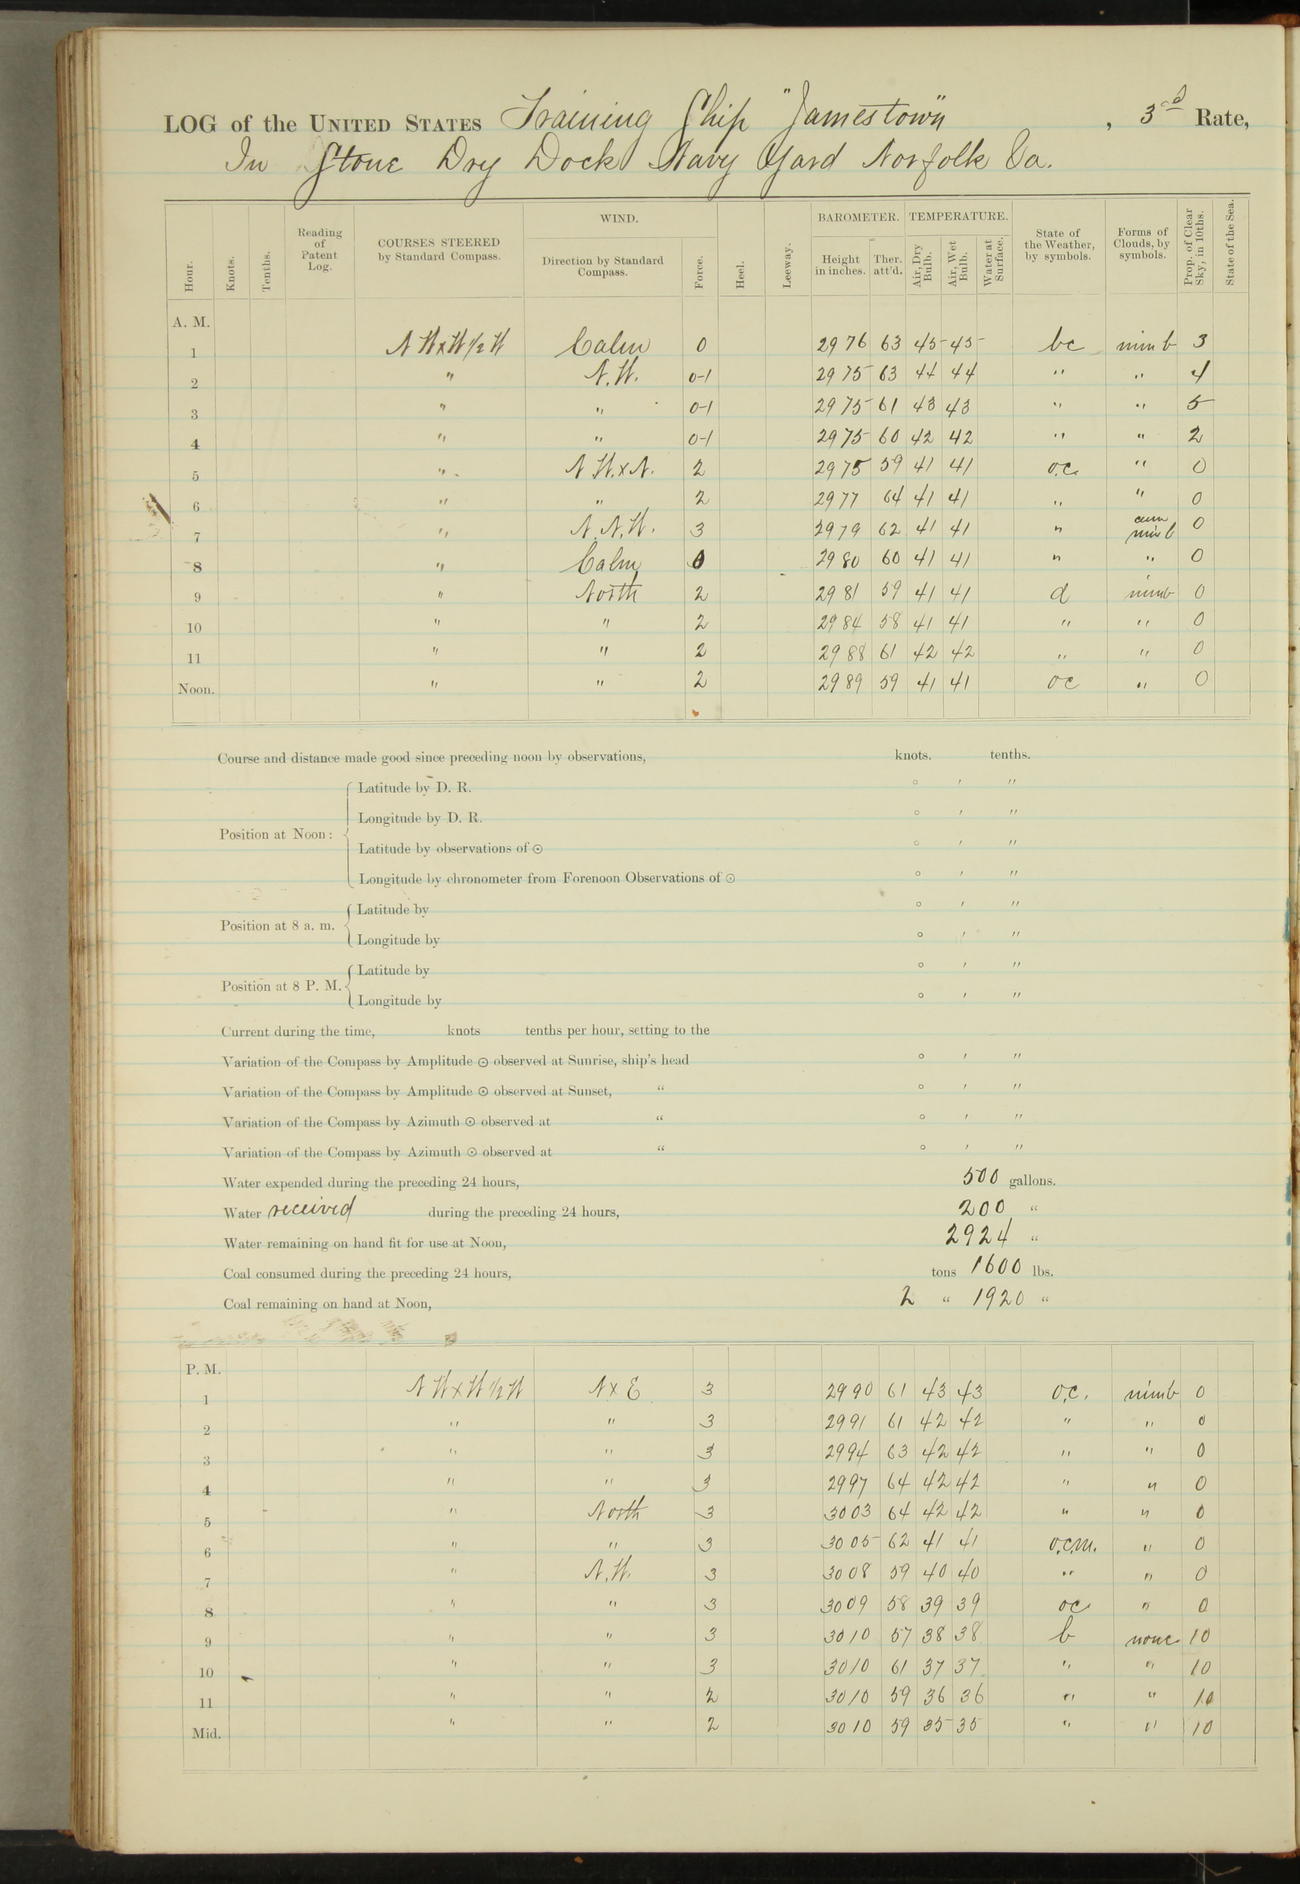 LOG of the UNITED STATES Training Ship "Jamestown", 3rd Rate,
In Stone Dry Dock Navy Yard Norfolk Va.
Hour. Knots. Tenths. Reading of Patent Log. COURSES STEERED by Standard Compass. WIND. Direction by Standard Compass. Force. Heel. Leeway. BAROMETER. Height in inches. Ther. att'd. TEMPERATURE. Air, Dry Bulb. Air, Wet Bulb. Water at Surface. State of the Weather, by symbols. Forms of Clouds, by symbols. Prop. of Clear Sky, in 10ths. State of the Sea.
A. M.
1 NWxW½W Calm 0 29 76 63 45 45 bc nimb 3
2 " N.W. 0-1 29 75 63 44 44 " " 4
3 " " 0-1 29 75 61 43 43 " " 5
4 " " 0-1 29 75 60 42 42 " " 2
5 " NW.xN. 2 29 75 59 41 41 o.c. " 0
6 " " 2 29 77 64 41 41 " " 0
7 " N.N.W. 3 29 79 62 41 41 " cum nimb 0
8 " Calm 0 29 80 60 41 41 " " 0
9 " North 2 29 81 59 41 41 d nimb 0
10 " " 2 29 84 58 41 41 " " 0
11 " " 2 29 88 61 42 42 " " 0
Noon. " " 2 29 89 59 41 41 oc " 0
Course and distance made good since preceding noon by observations, knots. tenths.
Position at Noon:
Latitude by D. R. ° ′ ″
Longitude by D. R. ° ′ ″
Latitude by observations of ☉ ° ′ ″
Longitude by chronometer from Forenoon Observations of ☉ ° ′ ″
Position at 8 a. m.
Latitude by ° ′ ″
Longitude by ° ′ ″
Position at 8 P. M.
Latitude by ° ′ ″
Longitude by ° ′ ″
Current during the time, knots tenths per hour, setting to the
Variation of the Compass by Amplitude ☉ observed at Sunrise, ship's head ° ′ ″
Variation of the Compass by Amplitude ☉ observed at Sunset, " ° ′ ″
Variation of the Compass by Azimuth ☉ observed at " ° ′ ″
Variation of the Compass by Azimuth ☉ observed at " ° ′ ″
Water expended during the preceding 24 hours, 500 gallons.
Water received during the preceding 24 hours, 200 "
Water remaining on hand fit for use at Noon, 2924 "
Coal consumed during the preceding 24 hours, tons 1600 lbs.
Coal remaining on hand at Noon, 2 " 1920 "
P. M.
1 NWxW½W NxE 3 29 90 61 43 43 o.c. nimb 0
2 " " 3 29 91 61 42 42 " " 0
3 " " 3 29 94 63 42 42 " " 0
4 " " 3 29 97 64 42 42 " " 0
5 " North 3 30 03 64 42 42 " " 0
6 " " 3 30 05 62 41 41 o.c.m. " 0
7 " N.W. 3 30 08 59 40 40 " " 0
8 " " 3 30 09 58 39 39 oc " 0
9 " " 3 30 10 57 38 38 b none 10
10 " " 3 30 10 61 37 37 " " 10
11 " " 2 30 10 59 36 36 " " 10
Mid. " " 2 30 10 59 35 35 " " 10